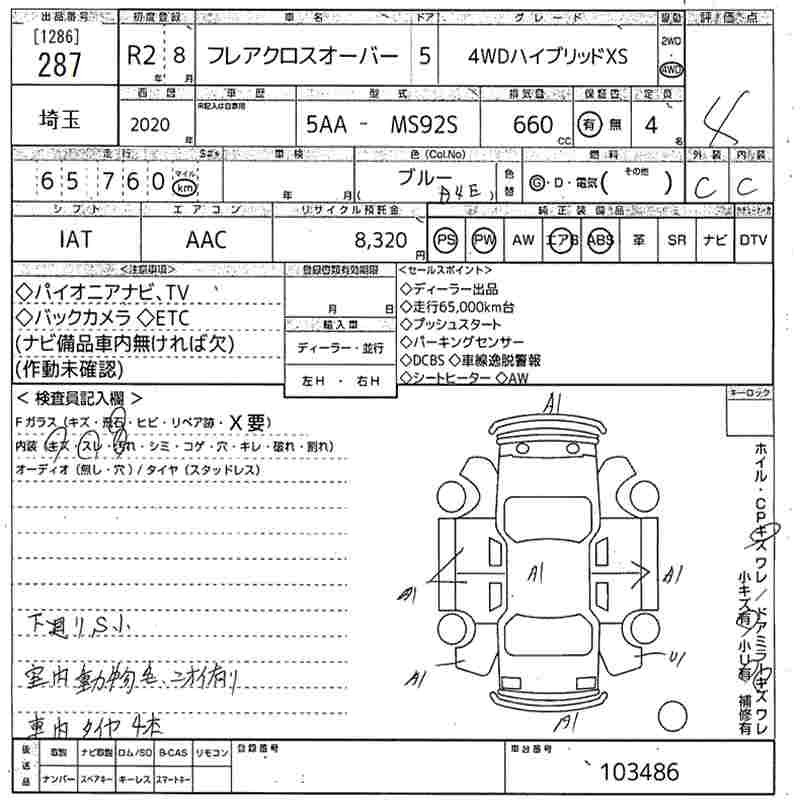 出品番号 初度登録 車名 ドア グレード 駆動 評価点
[1286]
287 R2 年 8 月 フレアクロスオーバー 5 4WDハイブリッドXS 2WD 4WD
4
西暦 車歴 型式 排気量 保証書 定員
埼玉 2020 年 未記入は自家用 5AA - MS92S 660 CC 有 無 4 名
走行 車検 色(Col.No) 燃料 外装 内装
65 760 マイル km 年 月 ブルー (A4E) 色替 G・D・電気( その他 ) C C
シフト エアコン リサイクル預託金 純正装備品
IAT AAC 8,320 円 PS PW AW エアB ABS 革 SR ナビ DTV
<注意事項> 登録書類有効期限 <セールスポイント>
◇パイオニアナビ、TV
◇バックカメラ ◇ETC
(ナビ備品車内無ければ欠)
(作動未確認)
月 日
輸入車
ディーラー・並行
左H ・ 右H
◇ディーラー出品
◇走行65,000km台
◇プッシュスタート
◇パーキングセンサー
◇DCBS ◇車線逸脱警報
◇シートヒーター ◇AW
<検査員記入欄> キーロック
Fガラス(キズ・飛石・ヒビ・リペア跡・X要)
内装(キズ・スレ・汚れ・シミ・コゲ・穴・キレ・破れ・割れ)
オーディオ(無し・穴)/タイヤ(スタッドレス)
A1
A1 A1 A1
A1 U1
A1
ホイル・CPキズワレ/ドアミラーキズワレ
小キズ有/小U有 補修有
下廻りS小
室内動物毛、ニオイ有り
車内タイヤ4本
後送品 取説 ナビ取説 ロム/SD B-CAS リモコン 登録番号 車台番号
ナンバー スペアキー キーレス スマートキー 103486